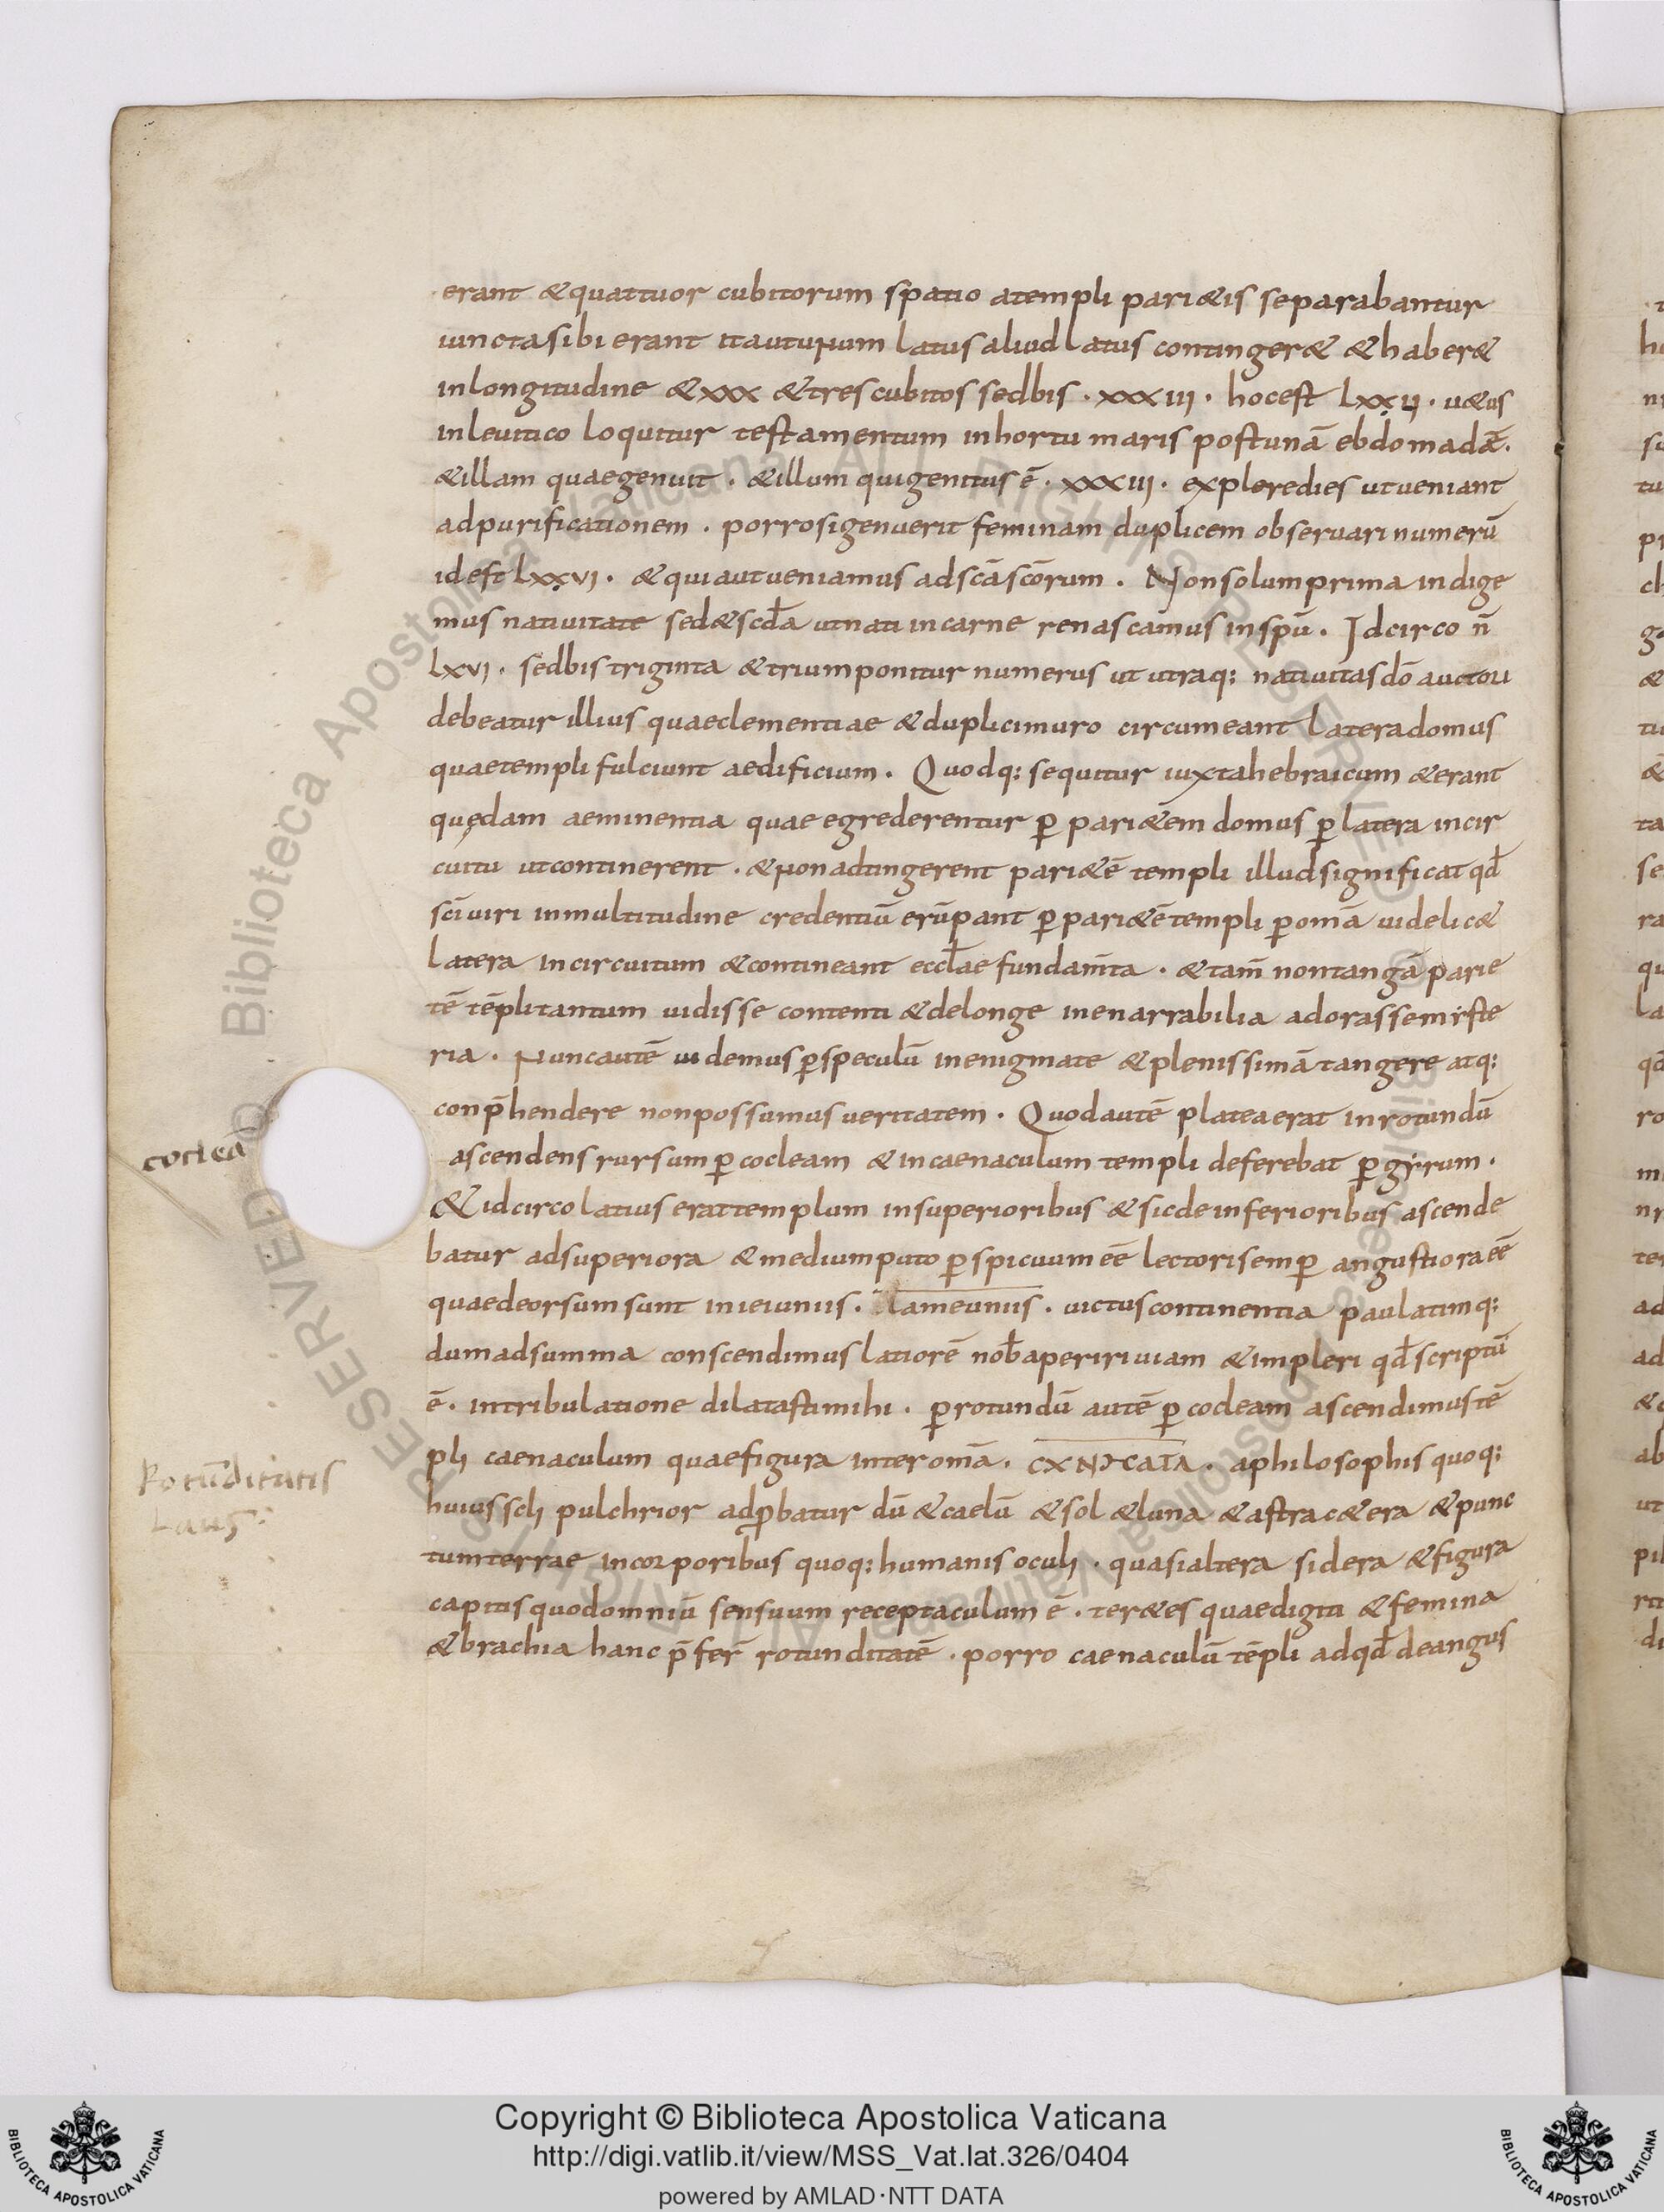 erant & quattuor cubitorum spatio a templi pari&is separabantur
iuncta sibi erant ita ut unum latus aliud latus conting er& & haber&
in longitudine & xxx & tres cubitos sed bis · xxxiii · hoc est lxxii · u&us
in leuitico loquitur testamentum in hortu maris post unā ebdomadā.
& illam quae genuit · & illum qui genitus ē · xxxiii · explere dies ut ueniant
ad purificationem · porro si genuerit feminam duplicem obseruari numerū
id est lxxvi · & qui aut ueniamus ad scā scōrum . Non solum prima indige
mus natiuitate sed & scďa ut nati in carne renascamus in spū . Idcirco n̄
lxvi · sed bis triginta & trium ponitur numerus ut utraq: natiuitas dō auctori
debeatur illius quae clementiae & duplici muro circumeant latera domus
quae templi fulciunt aedificium . Quodq: sequitur iuxta hebraicum & erant
quędam aeminentia quae egrederentur p̄ pari&em domus p̄ latera in cir
cuitu ut continerent · & non adtingerent pari&ē templi illud significat qđ
scī uiri in multitudine credentiū erūpant p̄ pari&ē templi p̄ omā uidelic&
latera in circuitum & contineant eccłae fundam̄ta · & tam̄ non tangā parie
tē tēpli tantum uidisse contenti & de longe inenarrabilia adorasse miste
ria . Nunc autē uidemus p̄ speculū in enigmate & plenissimā tangere atq:
conp̄hendere non possumus ueritatem . Quod autē platea erat in rotundū
coclea
ascendens rursum p̄ cocleam & in caenaculum templi deferebat p̄ girum .
& idcirco latius erat templum in superioribus & sic de inferioribus ascende
batur ad superiora & medium puto p̄spicuum eē lectori semp̄ angustiora eē
quae deorsum sunt in ieiuniis . uictus continentia paulatimq:
dum ad summa conscendimus latiorē noƀ aperiri uiam & impleri qđ scriptū
ē . in tribulatione dilatasti mihi . p̄ rotundū autē p̄ cocleam ascendimus tē
pli caenaculum quae figura inter omā . CXNHCATA . a philosophis quoq:
Rotūditatis
laus:
huius scłi pulchrior adp̄batur dū & caelū & sol & luna & astra c&era & punc
tum terrae in corporibus quoq: humanis oculi · quasi altera sidera & figura
capitis quod omniū sensuum receptaculum ē . ter&es quae digiti & femina
& brachia hanc p̄fer̄ rotunditatē . porro caenaculū tēpli ad qđ de angus
Copyright © Biblioteca Apostolica Vaticana
http://digi.vatlib.it/view/MSS_Vat.lat.326/0404
powered by AMLAD·NTT DATA
BIBLIOTECA APOSTOLICA VATICANA
BIBLIOTECA APOSTOLICA VATICANA